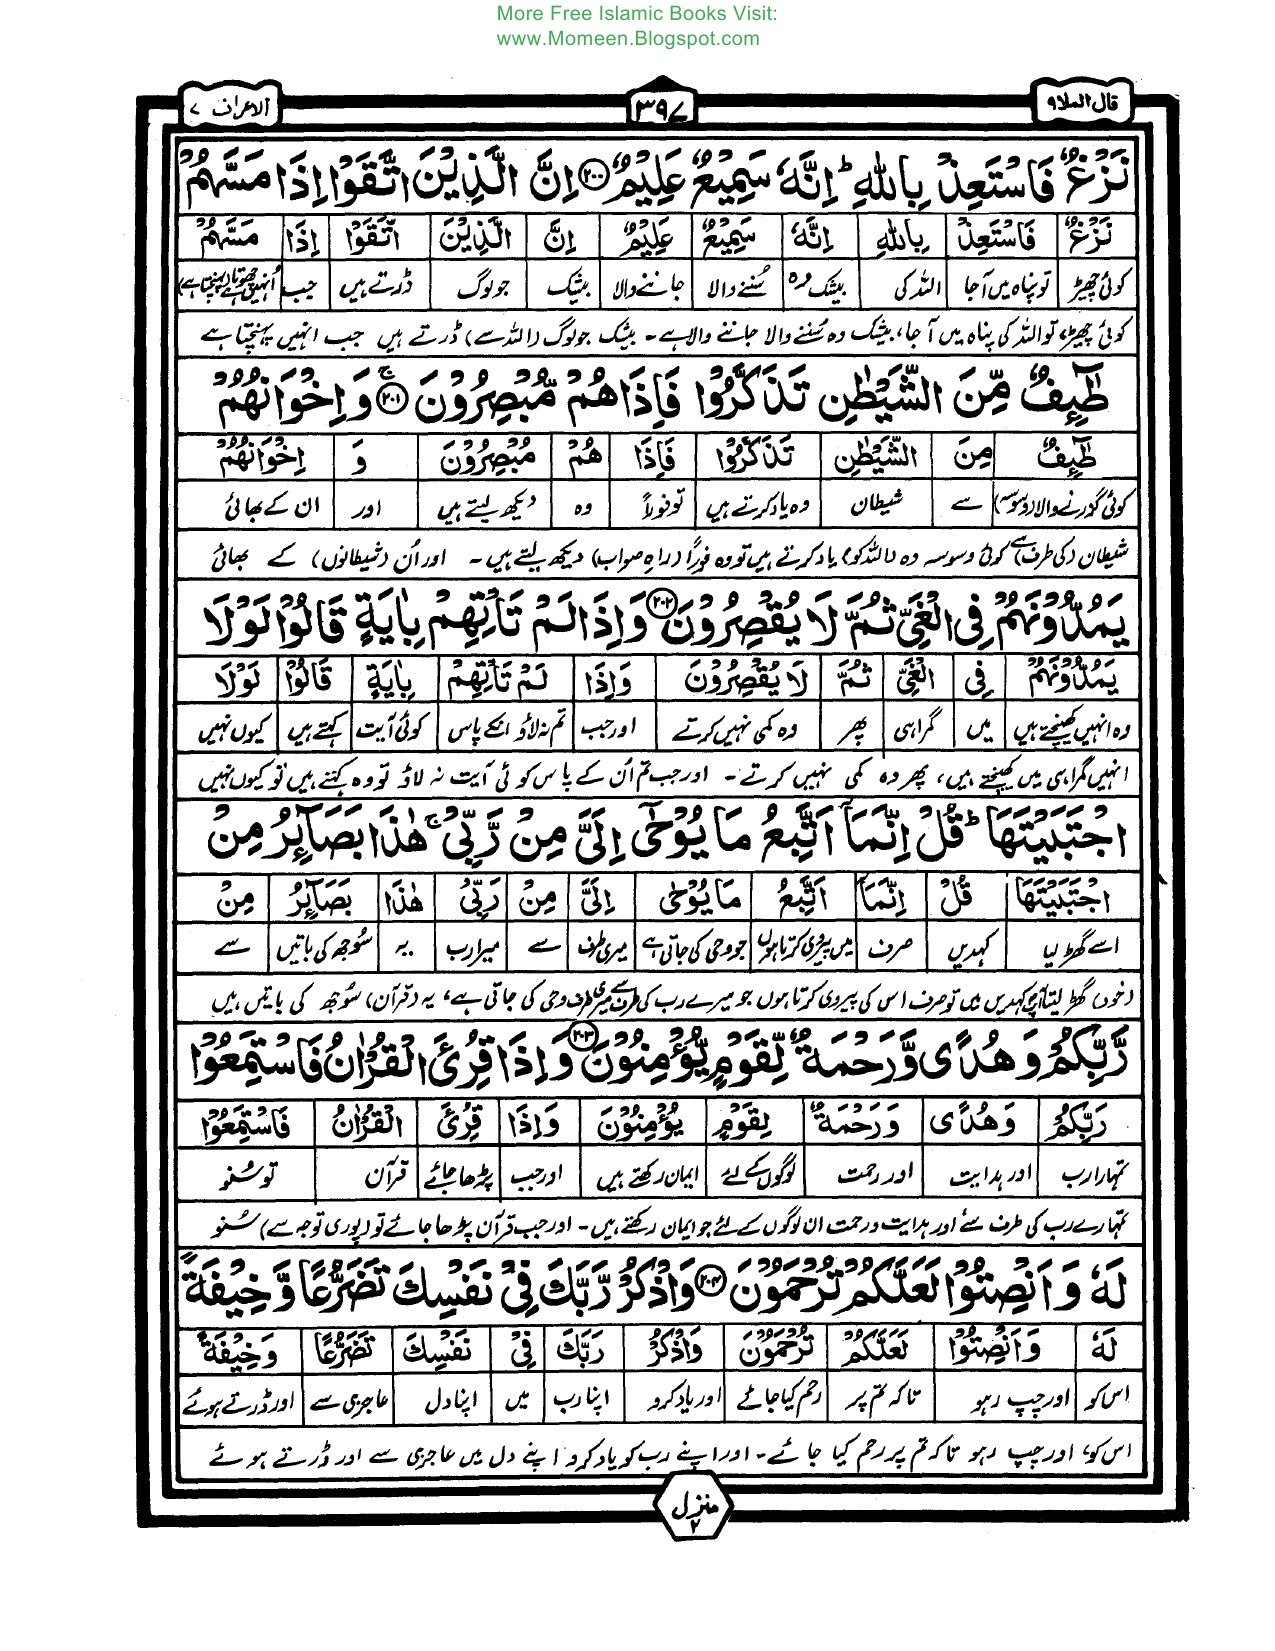 More Free Islamic Books Visit:
www.Momeen.Blogspot.com
قال الملا ۹
۳۹۷
الاعراف ۷
نَزْغٌ فَاسْتَعِذْ بِاللّٰهِ ؕ اِنَّهٗ سَمِیْعٌ عَلِیْمٌ ﴿۲۰۰﴾ اِنَّ الَّذِیْنَ اتَّقَوْا اِذَا مَسَّهُمْ
نَزْغٌ فَاسْتَعِذْ بِاللّٰهِ اِنَّهٗ سَمِیْعٌ عَلِیْمٌ اِنَّ الَّذِیْنَ اتَّقَوْا اِذَا مَسَّهُمْ
کوئی چھیڑ تو پناہ میں آجا اللہ کی بیشک وہ سُننے والا جاننے والا بیشک جو لوگ ڈرتے ہیں جب انہیں چھوتا (پہنچتا ہے)
کوئی چھیڑ، تو اللہ کی پناہ میں آ جا، بیشک وہ سُننے والا جاننے والا ہے۔ بیشک جو لوگ (اللہ سے) ڈرتے ہیں جب انہیں پہنچتا ہے
طٰٓئِفٌ مِّنَ الشَّیْطٰنِ تَذَكَّرُوْا فَاِذَا هُمْ مُّبْصِرُوْنَ ﴿۲۰۱﴾ۚ وَ اِخْوَانُهُمْ
طٰٓئِفٌ مِنَ الشَّیْطٰنِ تَذَكَّرُوْا فَاِذَا هُمْ مُبْصِرُوْنَ وَ اِخْوَانُهُمْ
کوئی گذرنے والا (وسوسہ) سے شیطان وہ یاد کرتے ہیں تو فوراً وہ دیکھ لیتے ہیں اور ان کے بھائی
شیطان (کی طرف) سے کوئی وسوسہ وہ (اللہ کو) یاد کرتے ہیں تو وہ فورًا (راہِ صواب) دیکھ لیتے ہیں۔ اور اُن (شیطانوں) کے بھائی
یَمُدُّوْنَهُمْ فِی الْغَیِّ ثُمَّ لَا یُقْصِرُوْنَ ﴿۲۰۲﴾ وَ اِذَا لَمْ تَاْتِهِمْ بِاٰیَةٍ قَالُوْا لَوْ لَا
یَمُدُّوْنَهُمْ فِی الْغَیِّ ثُمَّ لَا یُقْصِرُوْنَ وَاِذَا لَمْ تَاْتِهِمْ بِاٰیَةٍ قَالُوْا لَوْلَا
وہ انہیں کھینچتے ہیں میں گمراہی پھر وہ کمی نہیں کرتے اور جب تم نہ لاؤ انکے پاس کوئی آیت کہتے ہیں کیوں نہیں
انہیں گمراہی میں کھینچتے ہیں، پھر وہ کمی نہیں کرتے۔ اور جب تم اُن کے پاس کوئی آیت نہ لاؤ تو وہ کہتے ہیں تو کیوں نہیں
اجْتَبَیْتَهَا ؕ قُلْ اِنَّمَاۤ اَتَّبِعُ مَا یُوْحٰۤی اِلَیَّ مِنْ رَّبِّیْ ۚ هٰذَا بَصَآئِرُ مِنْ
اجْتَبَیْتَهَا قُلْ اِنَّمَا اَتَّبِعُ مَا یُوْحٰی اِلَیَّ مِنْ رَبِّیْ هٰذَا بَصَآئِرُ مِنْ
اسے گھڑ لیا کہدیں صرف میں پیروی کرتا ہوں جو وحی کی جاتی ہے میری طرف سے میرا رب یہ سُوجھ کی باتیں سے
(خود) گھڑ لیتا، آپ کہدیں میں تو صرف اس کی پیروی کرتا ہوں جو میرے رب کی طرف سے میری طرف وحی کی جاتی ہے، یہ (قرآن) سُوجھ کی باتیں ہیں
رَّبِّكُمْ وَ هُدًی وَّ رَحْمَةٌ لِّقَوْمٍ یُّؤْمِنُوْنَ ﴿۲۰۳﴾ وَ اِذَا قُرِئَ الْقُرْاٰنُ فَاسْتَمِعُوْا
رَبِّكُمْ وَهُدًی وَرَحْمَةٌ لِقَوْمٍ یُؤْمِنُوْنَ وَاِذَا قُرِئَ الْقُرْاٰنُ فَاسْتَمِعُوْا
تمہارا رب اور ہدایت اور رحمت لوگوں کے لئے ایمان رکھتے ہیں اور جب پڑھا جائے قرآن تو سُنو
تمہارے رب کی طرف سے اور ہدایت و رحمت ان لوگوں کے لئے جو ایمان رکھتے ہیں۔ اور جب قرآن پڑھا جائے تو (پوری توجہ سے) سُنو
لَهٗ وَ اَنْصِتُوْا لَعَلَّكُمْ تُرْحَمُوْنَ ﴿۲۰۴﴾ وَ اذْكُرْ رَّبَّكَ فِیْ نَفْسِكَ تَضَرُّعًا وَّ خِیْفَةً
لَهٗ وَاَنْصِتُوْا لَعَلَّكُمْ تُرْحَمُوْنَ وَاذْكُرْ رَبَّكَ فِیْ نَفْسِكَ تَضَرُّعًا وَخِیْفَةً
اس کو اور چپ رہو تاکہ تم پر رحم کیا جائے اور یاد کرو اپنا رب میں اپنا دل عاجزی سے اور ڈرتے ہوئے
اس کو، اور چپ رہو تاکہ تم پر رحم کیا جائے۔ اور اپنے رب کو یاد کرو اپنے دل میں عاجزی سے اور ڈرتے ہوئے
منزل ۲